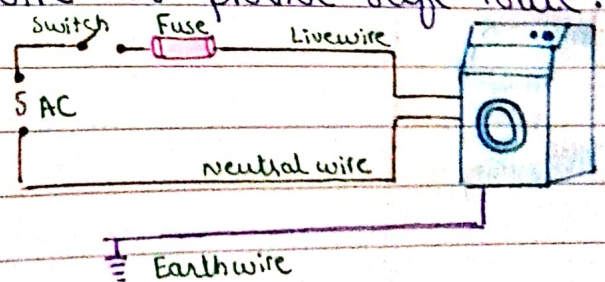 Switch
Fuse
Livewire
AC
Neutral wire
Earthwire